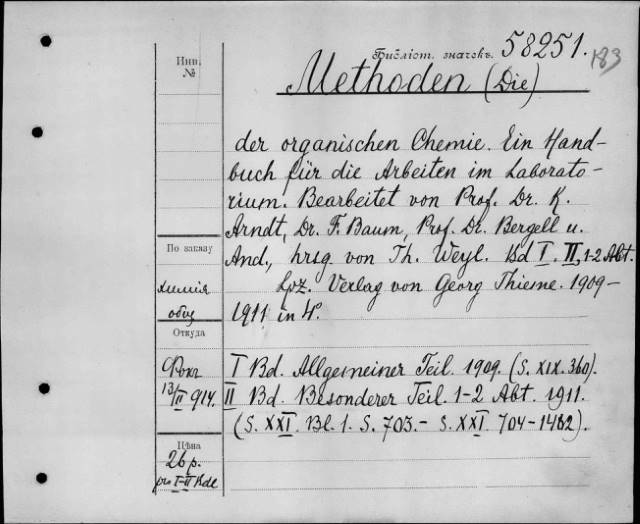 Инв. №
Библіот. значекъ. 58251. 183
Methoden (Die)
der organischen Chemie. Ein Hand-
buch für die Arbeiten im Laborato-
rium. Bearbeitet von Prof. Dr. K.
Arndt, Dr. F. Baum, Prof. Dr. Bergell u.
And., hrsg von Th. Weyl. Bd I. II, 1-2 Abt.
Lpz. Verlag von Georg Thieme. 1909-
1911 in 4°.
По заказу
химія
общ
Откуда
Фокъ
13/II 914.
I Bd. Allgemeiner Teil. 1909. (S. XIX. 360).
II Bd. Besonderer Teil 1-2 Abt. 1911.
(S. XXI. Bl. 1. S. 703.- S. XXI. 704-1482).
Цѣна
26 р.
pro I-II Bde